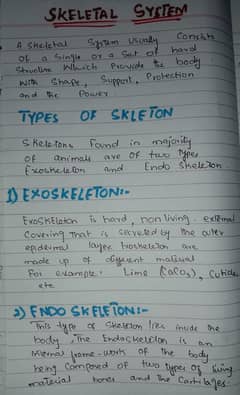 SKELETAL SYSTEM
A Skeletal System usually Consists
of a Single or a Set of hard
Structure Which Provide the body
with Shape, Support, Protection
and the Power.
TYPES OF SKLETON
Skeletons Found in majority
of animals are of two types
Exoskeleton and Endo Skeleton.
1) EXOSKELETON:-
ExoSkeleton is hard, non living external
Covering that is secreted by the outer
epidermal layer
are
made up of different material
For example: Lime (CaCO3), Cuticle
etc
2) ENDO SKELETON:-
This type of Skeleton lies inside the
body. The EndoSkeleton is an
internal frame-work of the body
being Composed of two types of living
material bones and The Cartilages.